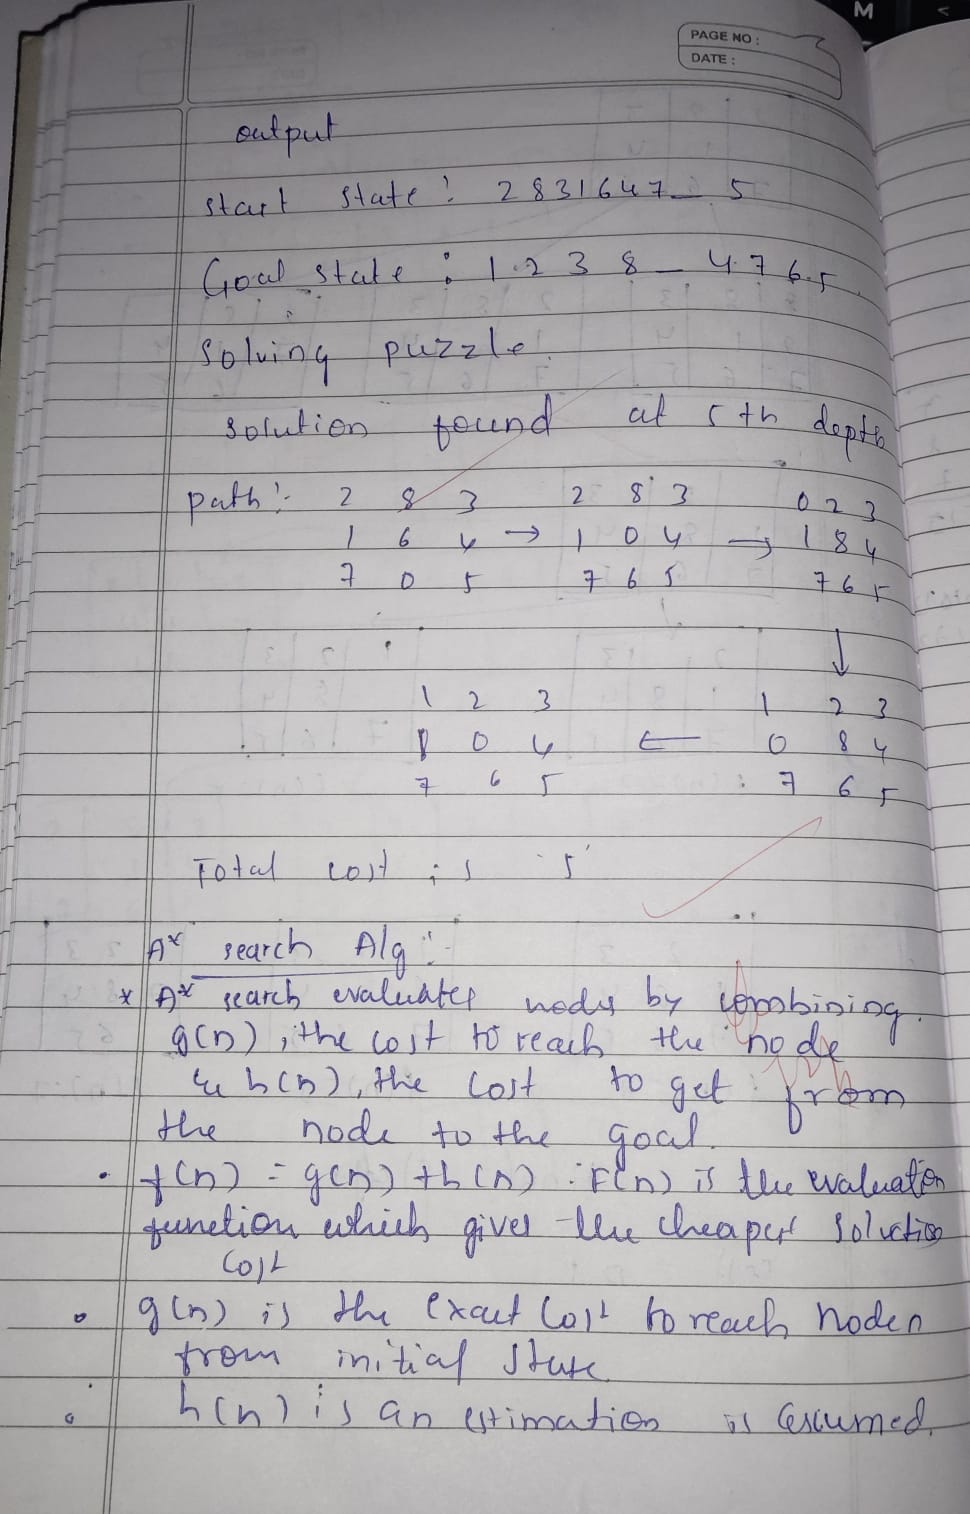 M <
PAGE NO :
DATE :
output
start state : 2831647_ 5
Goal state : 1 2 3 8 _ 4 7 6 5
Solving puzzle.
Solution found at 5th depth
path :- 2 8 3 2 8 3 0 2 3
1 6 4 → 1 0 4 → 1 8 4
7 0 5 7 6 5 7 6 5
↓
1 2 3 1 2 3
0 4 ← 0 8 4
7 6 5 7 6 5
Total cost is 5
A* search Alg :-
* A* search evaluates nodes by combining
g(n), the cost to reach the node
h(n), the cost to get from
the node to the goal.
• f(n) = g(n) + h(n) : F(n) is the evaluation
function which gives the cheapest solution
cost
• g(n) is the exact cost to reach node n
from initial state
• h(n) is an estimation is assumed.